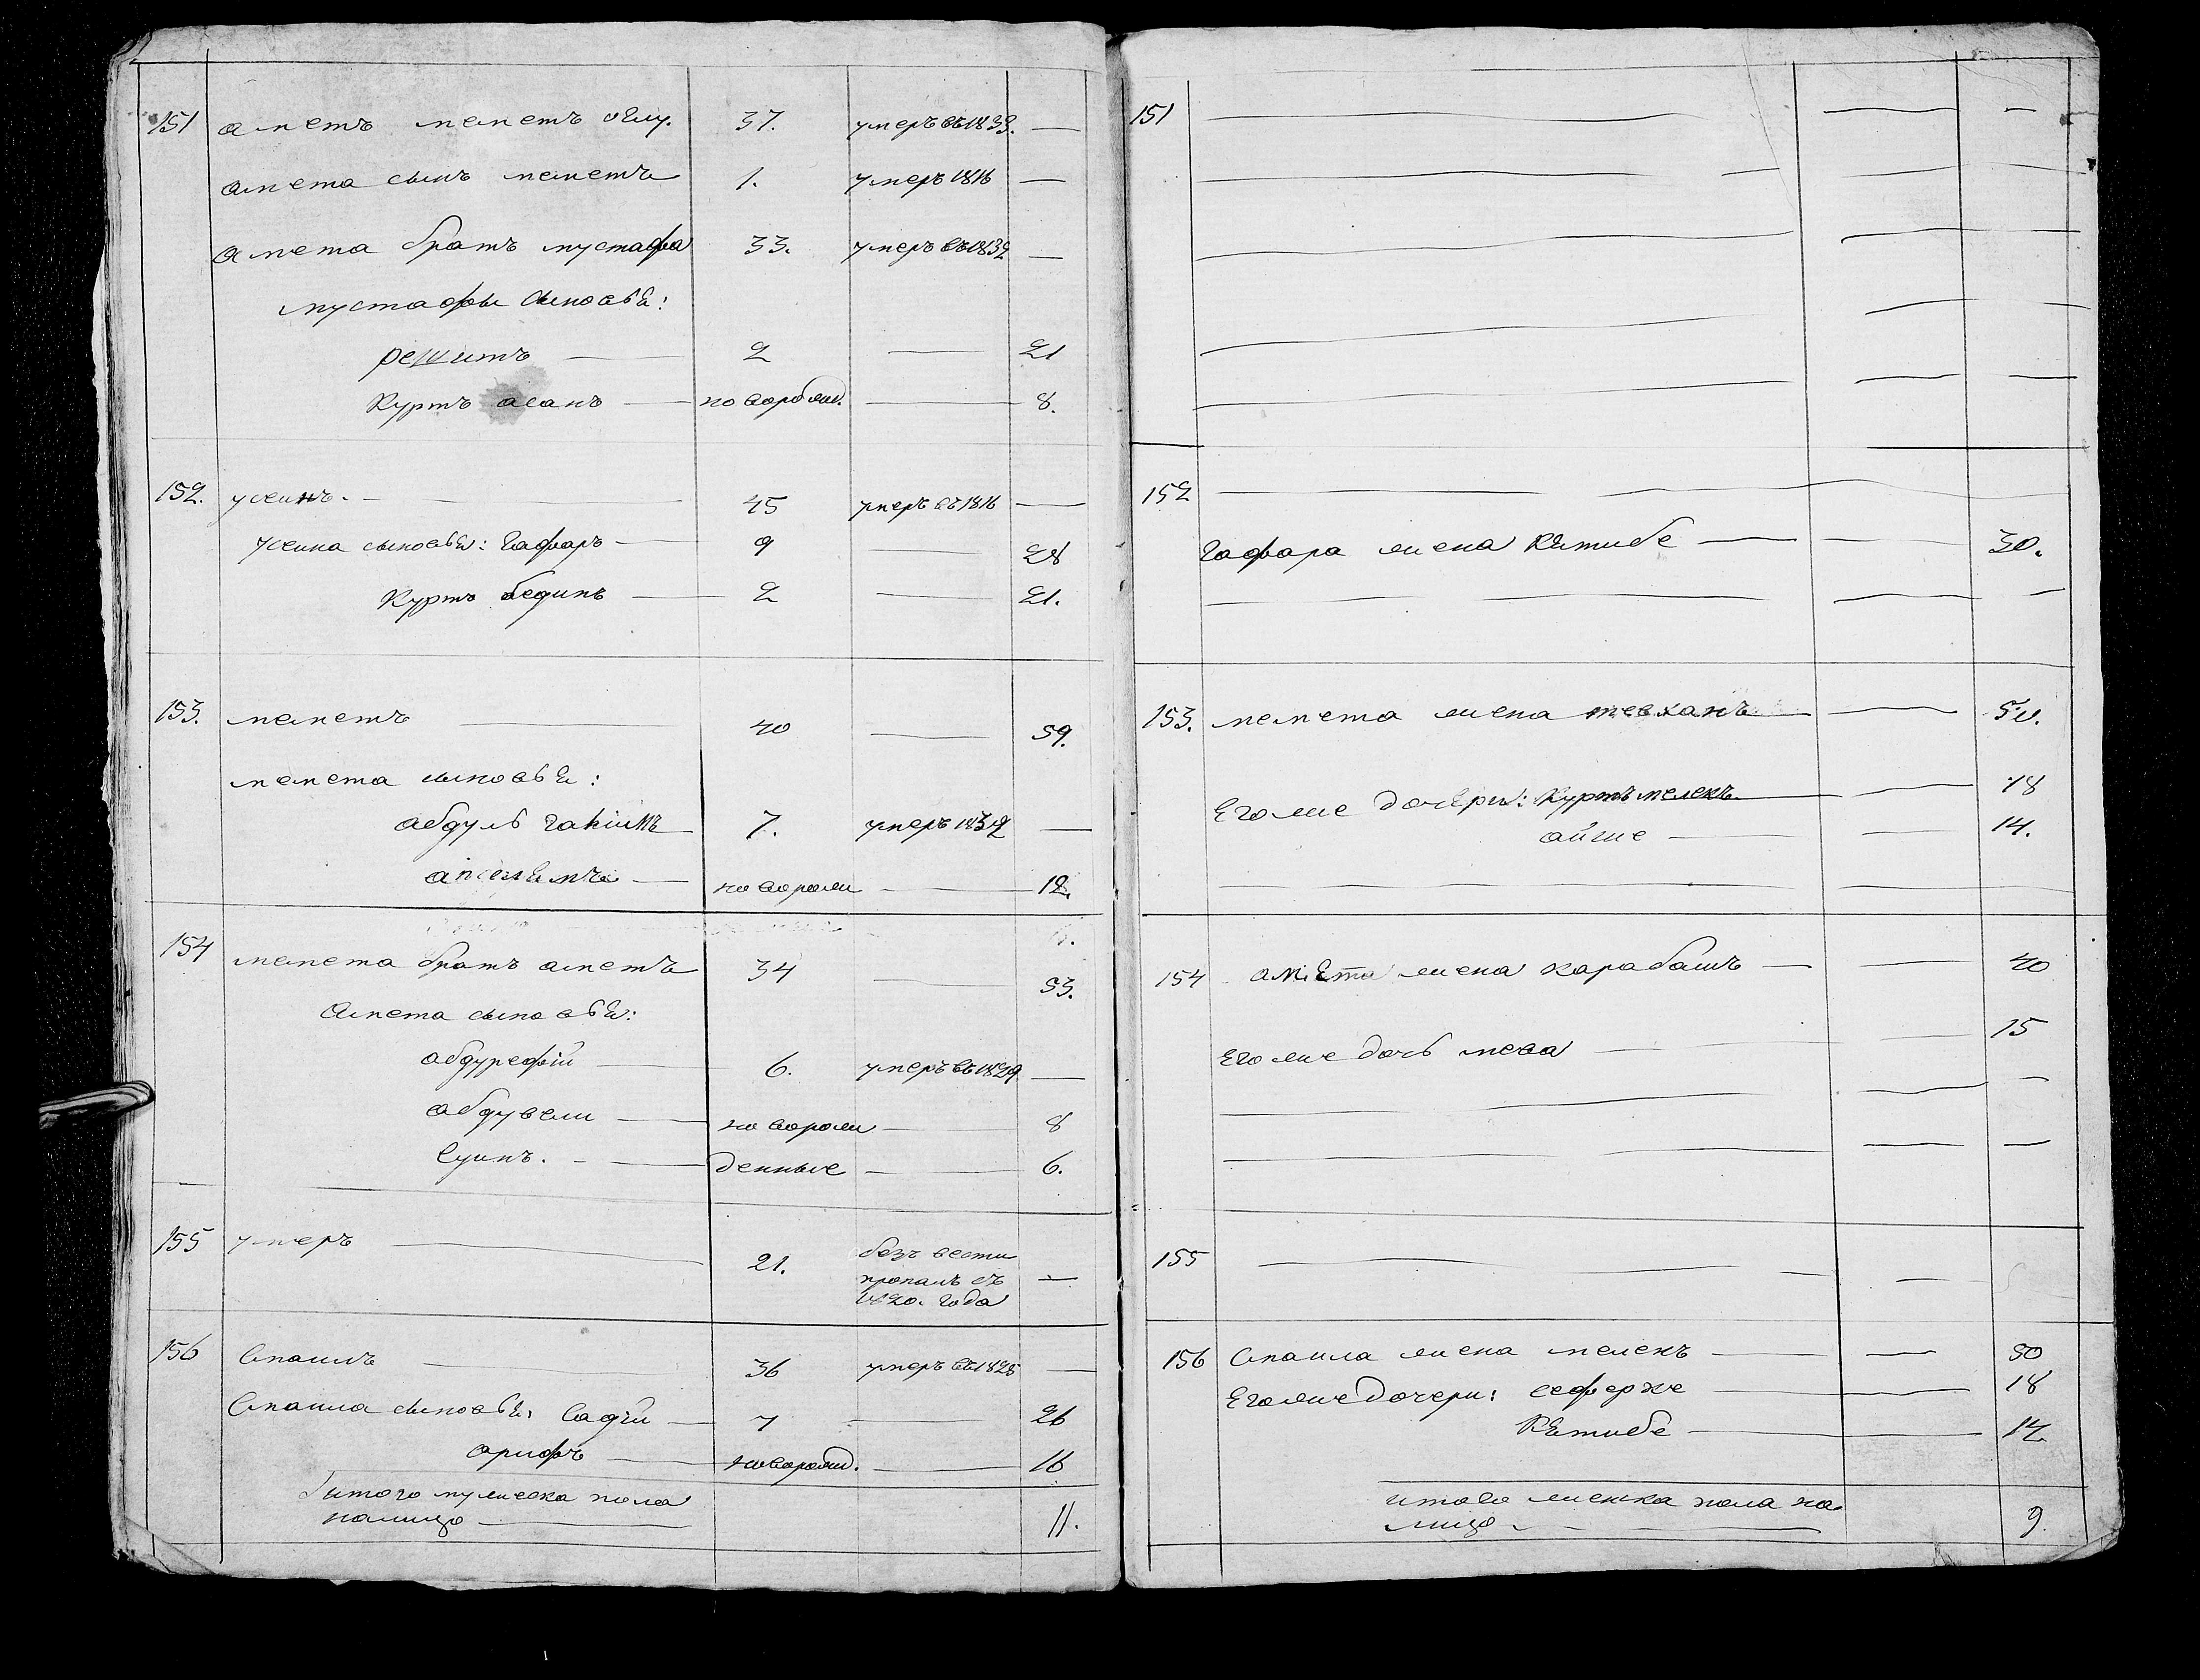 151 аметъ меметъ оглу. 37. умеръ въ 1833. —
амета сынъ меметъ 1. умеръ 1816 —
амета братъ мустафа 33. умеръ въ 1832 —
мустафы сыновья:
решитъ — 2 — 21
Куртъ асанъ — новорожд. — 8.
152. усеинъ. — 45 умеръ въ 1816 —
усеина сыновья: Гафаръ — 9 — 28
Куртъ бединъ — 2 — 21.
153. меметъ — 40 — 59.
мемета сыновья:
абдуль гакимъ 7. умеръ 1832 —
апселямъ — новорож — 12.
154 мемета братъ аметъ 34 — 53.
Амета сыновья:
абдурефiй — 6. умеръ въ 1829 —
абдувели — новорож — 8
Суинъ. — денные — 6.
155 умеръ — 21. безъ вести
пропалъ съ —
1820. года
156 Смаилъ — 36 умеръ въ 1828 —
Смаила сыновья: Садiй — 7 — 26
арифъ — новорожд. — 16
итого мужеска пола
налицо — 11.
151 — — —
152 — — —
Гафара жена Кятибе — — 30.
153. мемета жена тевханъ — — 50.
Его же дочери: Куртъ мелекъ — 18
айше — — 14.
154 амета жена карабашъ — — 40
Его же дочь мева — — 15
155 — — —
156 Смаила жена мелекъ — — 50
Его же дочери: сеферже — — 18
Кятибе — 14
итого женска пола на
лицо — 9.